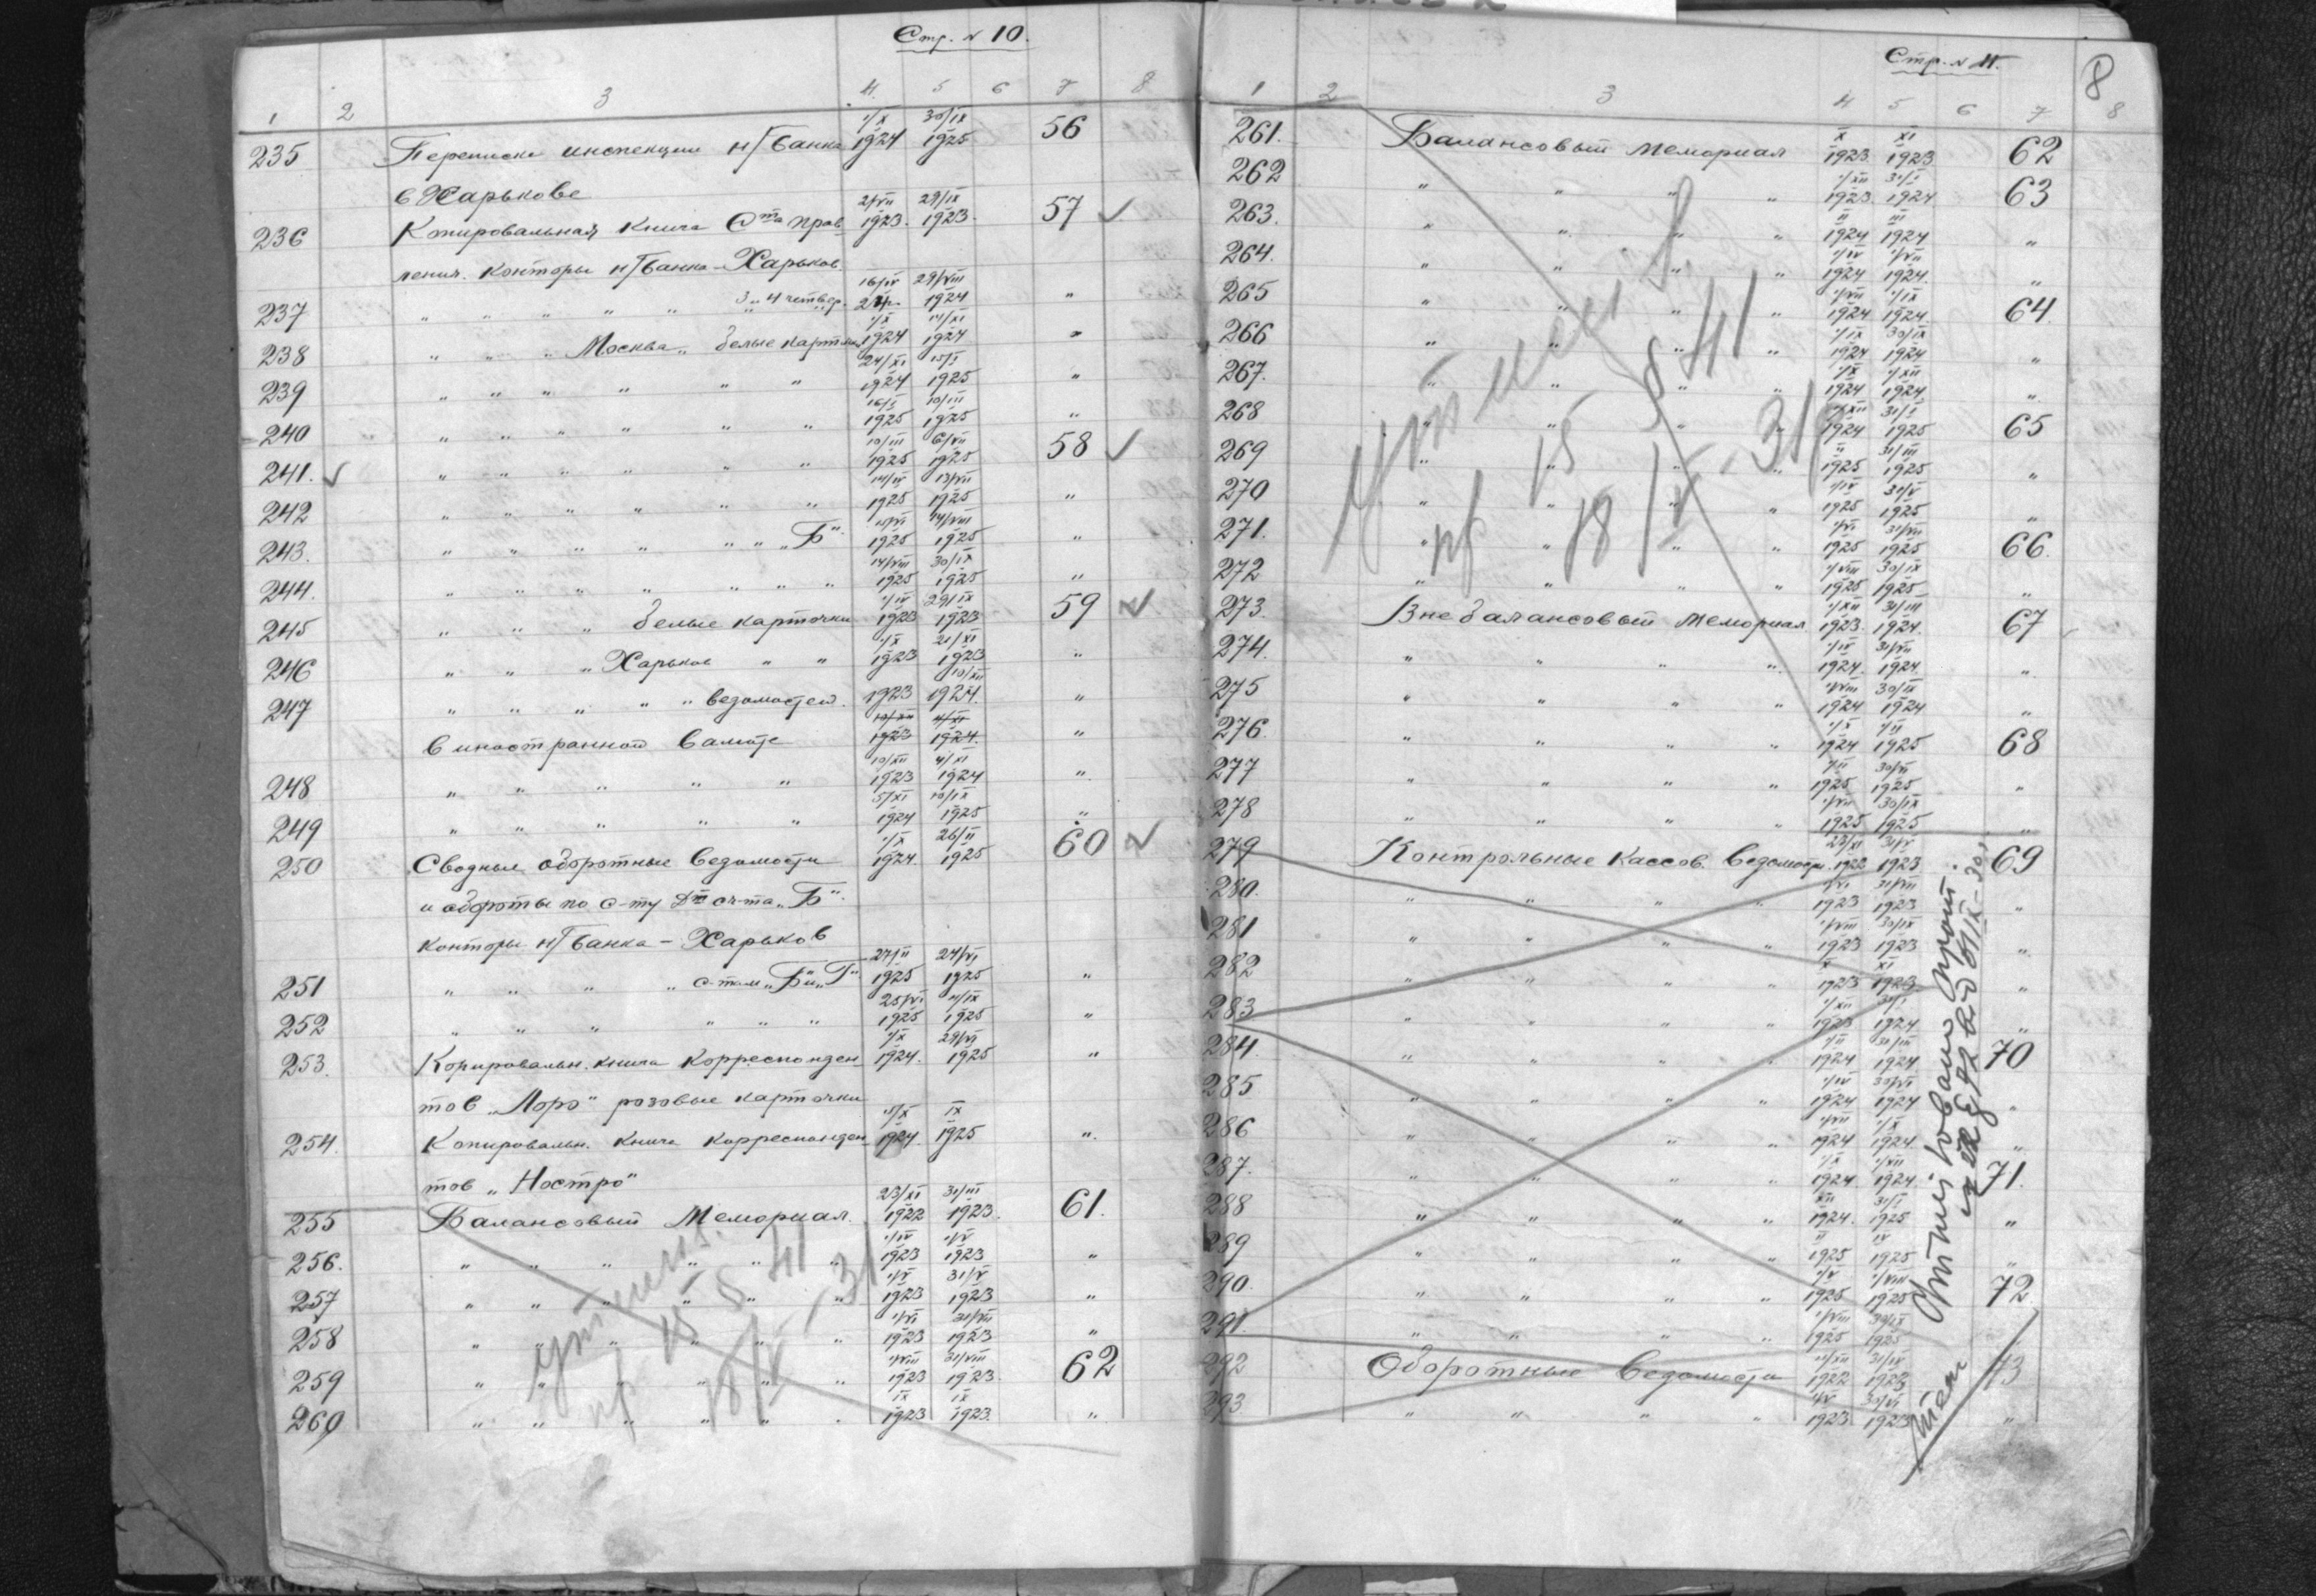 Стр. № 10.
1 2 3 4 5 6 7 8
235 Переписка инспекции н/Банка 1/X 1924 30/IX 1925 56
в Харькове
236 Копировальная книга Ста Прав- 2/VII 1923. 29/IX 1923. 57 ✓
ления конторы н/Банка-Харьков.
237 " " " " " 3 и 4 четвер. 16/IV 24 29/VIII 1924 "
238 " " " Москва " белые карточки 1/X 1924 14/XI 1924 "
239 " " " " " " 24/XI 1924 15/I 1925 "
240 " " " " " " 16/I 1925 10/III 1925 "
241. ✓ " " " " " " 10/III 1925 6/VII 1925 58 ✓
242 " " " " " " 1925 13/VII 1925 "
243. " " " " " " "Б". 1925 14/VIII 1925 "
244. " " " " " " " 14/VIII 1925 30/IX 1925 "
245 " " " белые карточки 1/IV 1923 29/IX 1923 59 ✓
246 " " " Харьков " " 1/X 1923 21/XI 1923 "
247 " " " " " ведомостей. 1923 10/XII 1924. "
в иностранной валюте 10/XII 1923 4/XI 1924 "
248 " " " " " 10/XII 1923 4/XI 1924 "
249 " " " " " 5/XI 1924 10/IX 1925 "
250 Сводные оборотные ведомости 1/X 1924. 26/II 1925 60 ✓
и обороты по с-ту Дт сч-та "Б".
конторы н/Банка - Харьков
251 " " " " с-там "Б" и "Г" 27/II 1925 24/VI 1925 "
252 " " " " " " 25/VI 1925 11/IX 1925 "
253. Копировальн. книга корреспонден- 1/X 1924. 29/VI 1925 "
тов "Лоро" розовые карточки
254. Копировальн. книга корреспонден- 1924. IX 1925 "
тов "Ностро"
255 Балансовый Мемориал. 23/XI 1922 31/III 1923. 61.
256. " " " " " " 1/IV 1923 1/V 1923 "
257 " " " " " " 1/V 1923 31/V 1923 "
258 " " " " " " 1/VI 1923 31/VII 1923 "
259 " " " " " " 1/VIII 1923 31/VIII 1923. 62
260 " " " " " " IX 1923 IX 1923. "
пр 15 § 41
18/V-31
Стр. № 11.
8
1 2 3 4 5 6 7 8
261. Балансовый мемориал X 1923. XI 1923. 62
262 " " " " 1/XII 1923. 31/I 1924 63
263. " " " " II 1924 III 1924 "
264. " " " " 1/IV 1924 1/VII 1924. "
265 " " " " 1/VII 1924 1/IX 1924. 64.
266 " " " " 1/IX 1924 30/IX 1924 "
267. " " " " 1/X 1924 1/XII 1924 "
268 " " " " 1/XII 1924 31/I 1925 65
269 " " " " II 1925 31/III 1925 "
270 " " " " 1/IV 1925 31/V 1925 "
271. " " " " 1/VI 1925 31/VII 1925 66.
272 " " " " 1/VIII 1925 30/IX 1925 "
273. Внебалансовый мемориал 1/XII 1923. 31/III 1924. 67
274. " " " " 1/IV 1924. 31/VII 1924. "
275 " " " " 1/VIII 1924 30/IX 1924 "
276. " " " " 1/X 1924 1/II 1925 68
277 " " " " 1/II 1925 30/VI 1925 "
278 " " " " 1/VII 1925 30/IX 1925 "
279 Контрольные Кассов. Ведомости. 23/XI 1922 31/V 1923 69
280. " " " " 1/VI 1923 31/VII 1923 "
281 " " " " 1/VIII 1923 30/IX 1923 "
282 " " " " X 1923 XI 1923 "
283 " " " " 1/XII 1923 31/I 1924 "
284. " " " " 1/II 1924 31/III 1924 70
285 " " " " 1/IV 1924 30/VI 1924 "
286 " " " " 1/VII 1924 1/X 1924. "
287. " " " " 1/X 1924 1/XII 1924. 71.
288 " " " " XII 1924. 31/I 1925 "
289 " " " " II 1925 IV 1925 "
290. " " " " 1/V 1925 1/VIII 1925 72
291. " " " " 1/VIII 1925 30/IX 1925 "
292 Оборотные Ведомости 1922 1923 73
293 " " " " 1/V 1923 30/VI 1923 "
пр 15 § 41
18/V-31